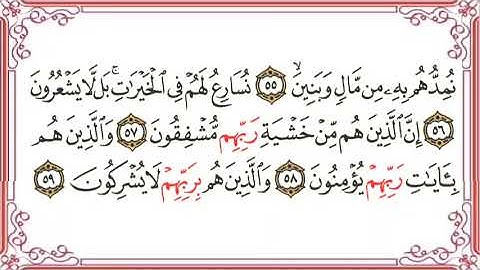 نُمِدُّهُم بِهِۦ مِن مَّالٍ وَبَنِينَ ۙ ٥٥ نُسَارِعُ لَهُمْ فِى الْخَيْرَٰتِ ۚ بَل لَّا يَشْعُرُونَ
٥٦ إِنَّ الَّذِينَ هُم مِّنْ خَشْيَةِ رَبِّهِم مُّشْفِقُونَ ٥٧ وَالَّذِينَ هُم
بِـَٔايَٰتِ رَبِّهِمْ يُؤْمِنُونَ ٥٨ وَالَّذِينَ هُم بِرَبِّهِمْ لَا يُشْرِكُونَ ٥٩